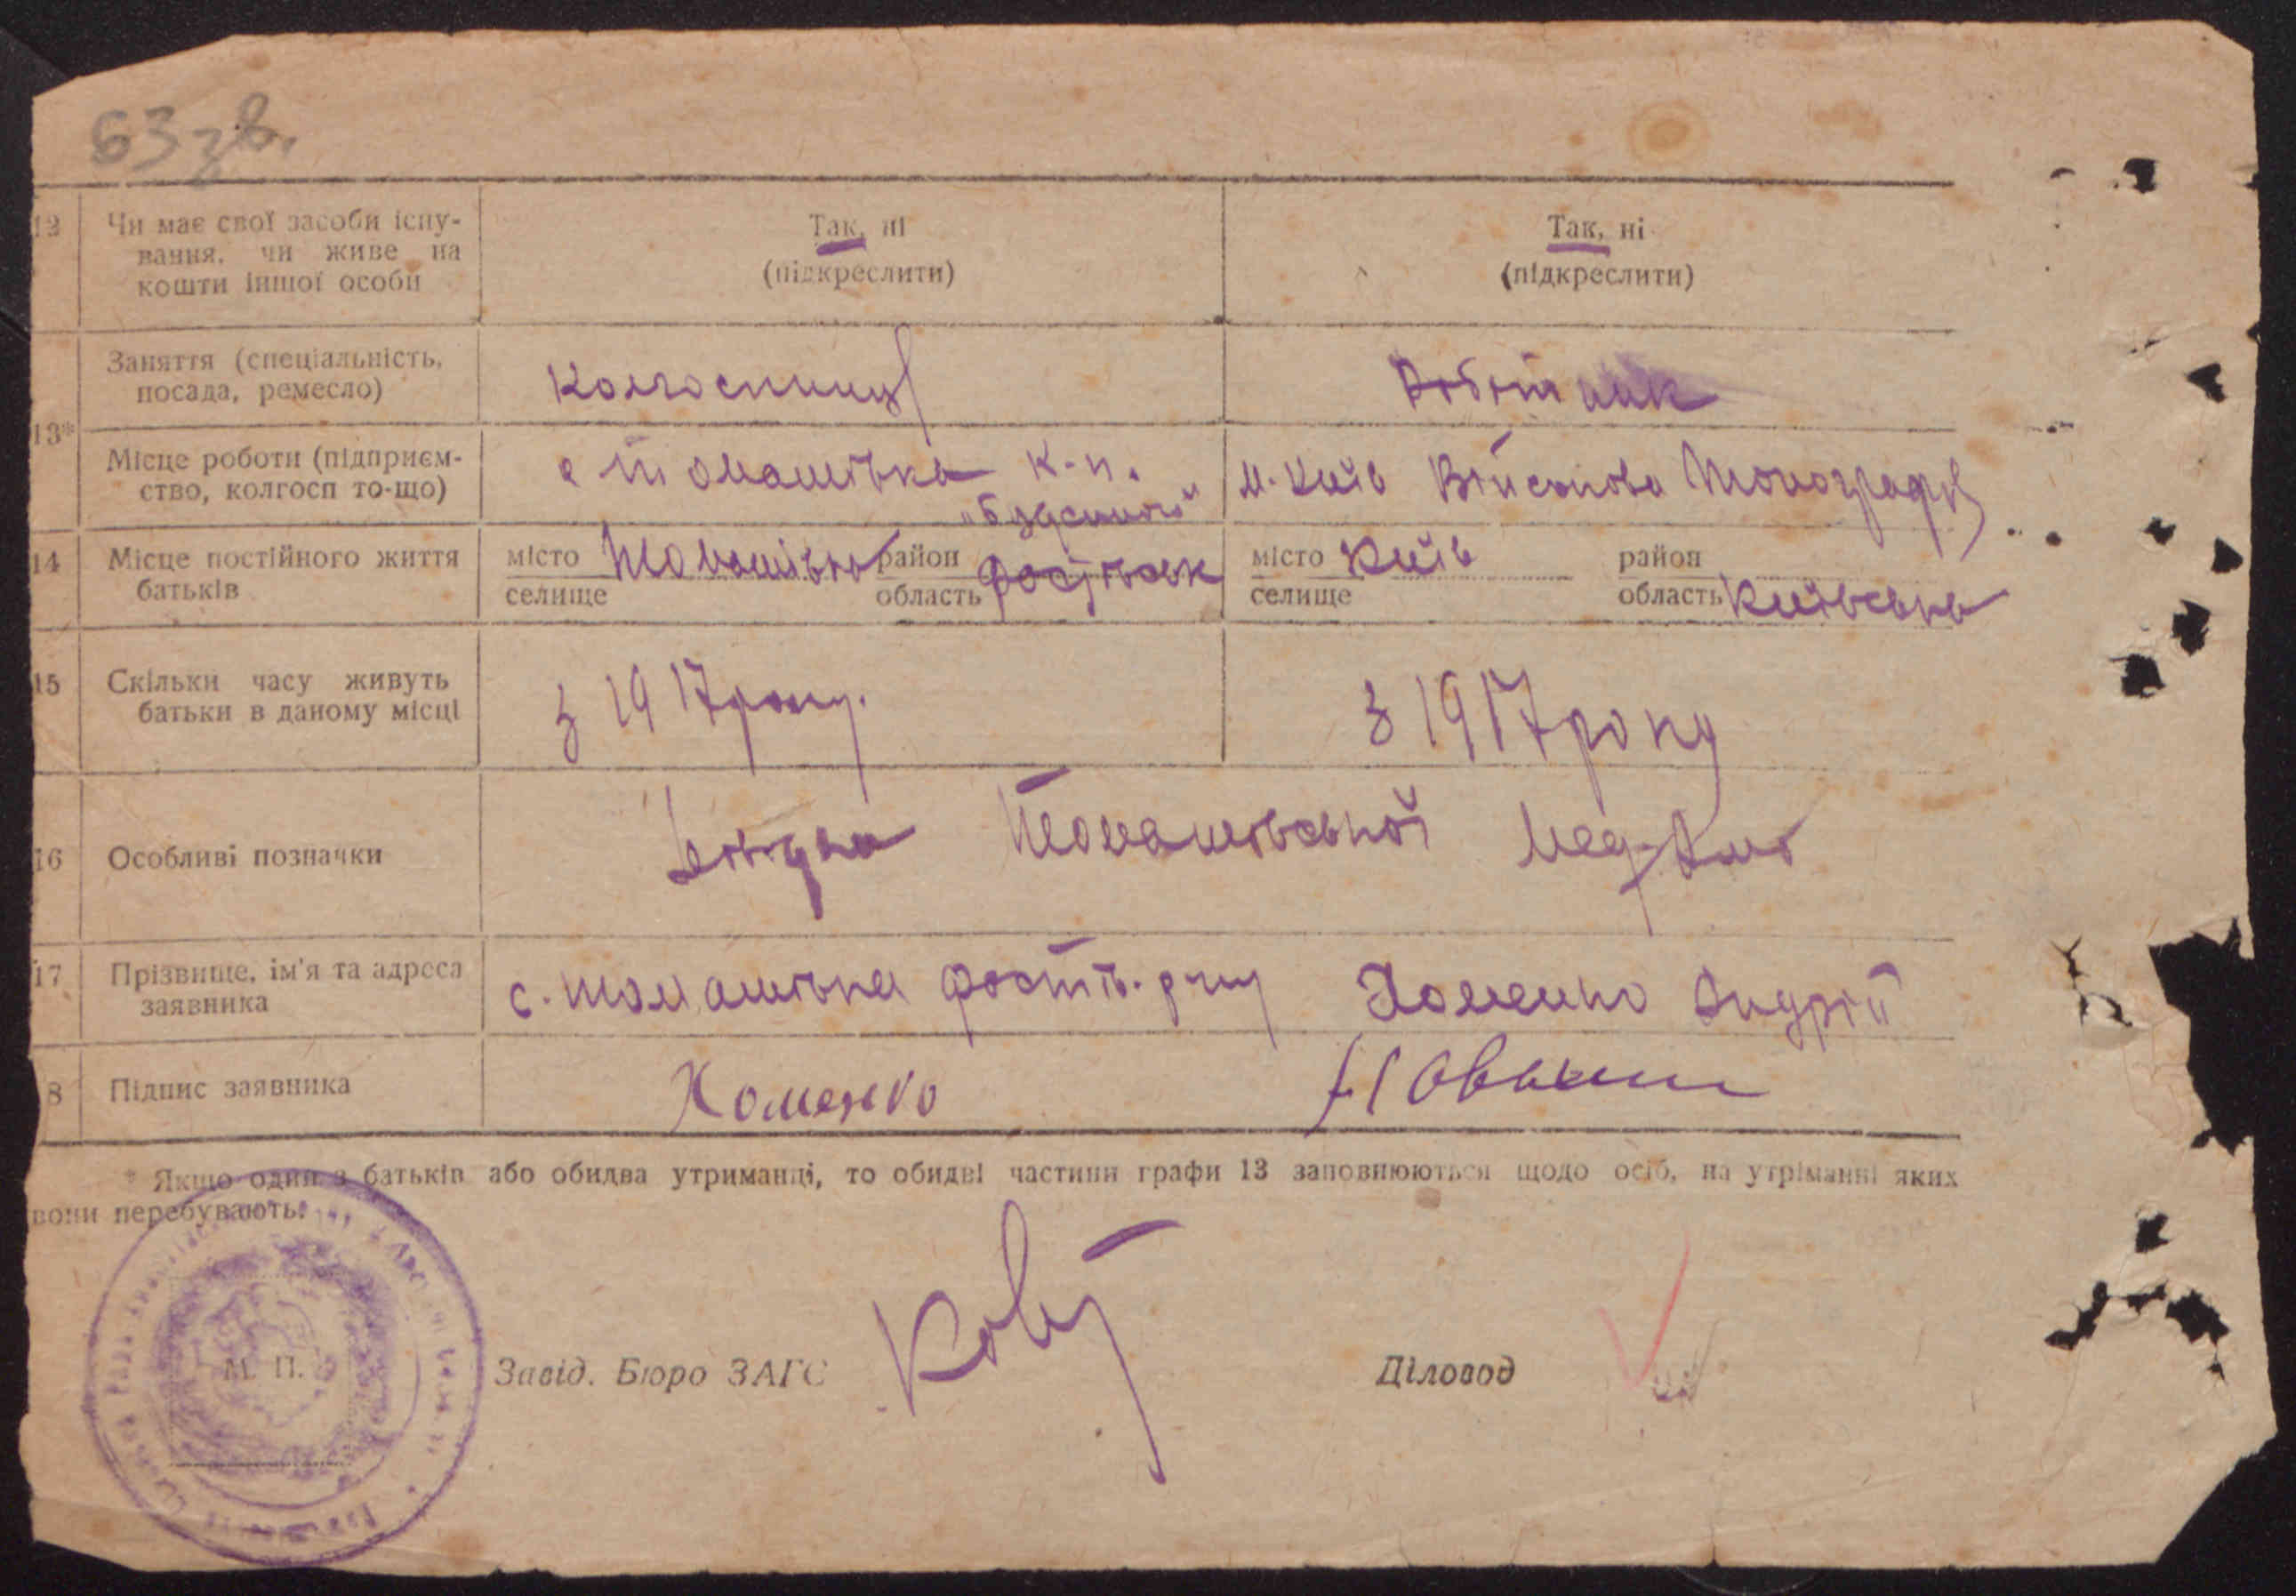 63 зв.
12 Чи має свої засоби існу-
вання, чи живе на
кошти іншої особи
Так, ні
(підкреслити)
Так, ні
(підкреслити)
13*
Заняття (спеціальність,
посада, ремесло)
Колгоспниця
Робітник
Місце роботи (підприєм-
ство, колгосп то-що)
с Томашівка к-п.
„Будьоного"
м. Київ Військова
14 Місце постійного життя
батьків
місто Томашівка район
селище область
місто Київ район
селище область Київська
15 Скільки часу живуть
батьки в даному місці
з 1917 року.
з 1917 року
16 Особливі позначки
Довідка Томашівської
17 Прізвище, ім'я та адреса
заявника
с. Томашівка Фастів. р-ну Хоменко Андрій
8 Підпис заявника
Хоменко
* Якщо один з батьків або обидва утриманці, то обидві частини графи 13 заповнюються щодо осіб, на утріманні яких
вони перебувають.
М. П.
Завід. Бюро ЗАГС
Діловод